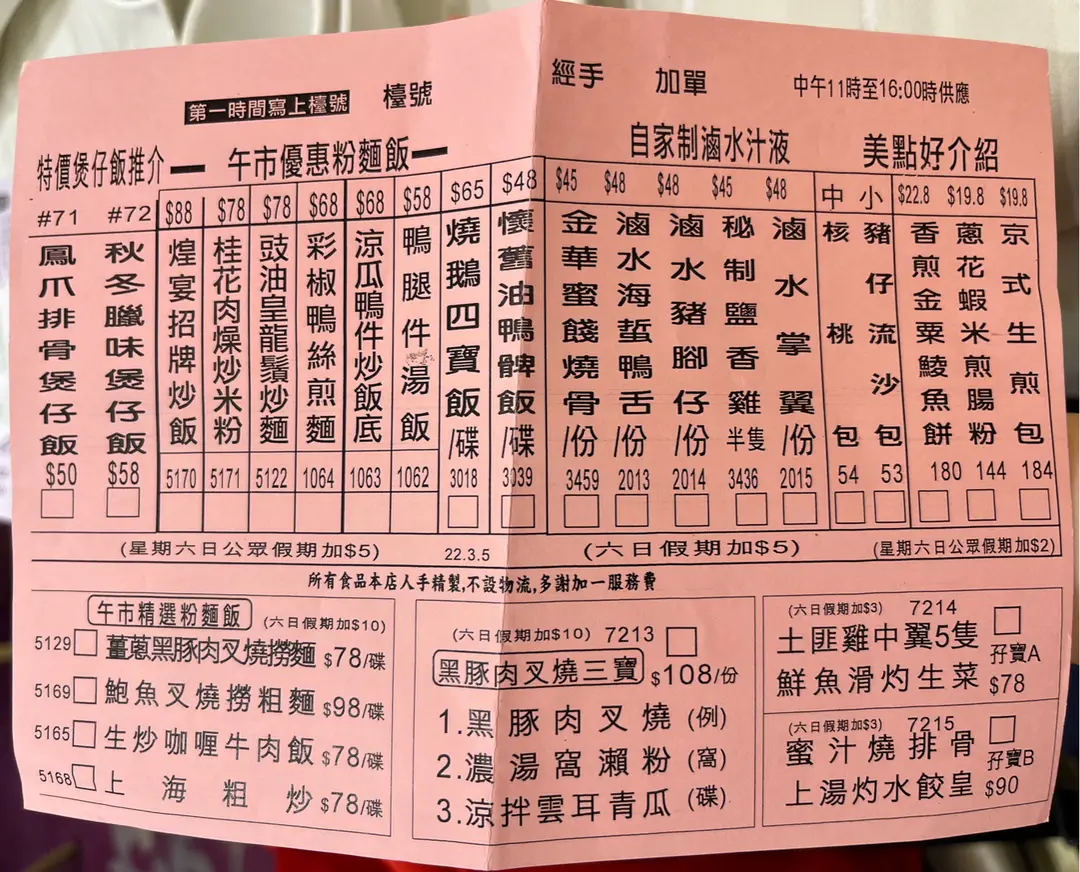 第一時間寫上檯號 檯號 經手 加單 中午11時至16:00時供應
特價煲仔飯推介 午市優惠粉麵飯 自家制滷水汁液 美點好介紹
#71 鳳爪排骨煲仔飯 $50
#72 秋冬臘味煲仔飯 $58
$88 煌宴招牌炒飯 5170
$78 桂花肉燥炒米粉 5171
$78 豉油皇龍鬚炒麵 5122
$68 彩椒鴨絲煎麵 1064
$68 涼瓜鴨件炒飯底 1063
$58 鴨腿件湯飯 1062
$65 燒鵝四寶飯/碟 3018
$48 懷舊油鴨髀飯/碟 3039
$45 金華蜜餞燒骨/份 3459
$48 滷水海蜇鴨舌/份 2013
$48 滷水豬腳仔/份 2014
$45 秘制鹽香雞半隻 3436
$48 滷水掌翼/份 2015
中 核桃包 54
小 豬仔流沙包 53
$22.8 香煎金粟鯪魚餅 180
$19.8 蔥花蝦米煎腸粉 144
$19.8 京式生煎包 184
(星期六日公眾假期加$5) 22.3.5 (六日假期加$5) (星期六日公眾假期加$2)
所有食品本店人手精製,不設物流,多謝加一服務費
午市精選粉麵飯 (六日假期加$10)
5129 薑蔥黑豚肉叉燒撈麵 $78/碟
5169 鮑魚叉燒撈粗麵 $98/碟
5165 生炒咖喱牛肉飯 $78/碟
5168 上海粗炒 $78/碟
(六日假期加$10) 7213
黑豚肉叉燒三寶 $108/份
1.黑豚肉叉燒(例)
2.濃湯窩瀨粉(窩)
3.涼拌雲耳青瓜(碟)
(六日假期加$3) 7214
土匪雞中翼5隻 孖寶A
鮮魚滑灼生菜 $78
(六日假期加$3) 7215
蜜汁燒排骨 孖寶B
上湯灼水餃皇 $90